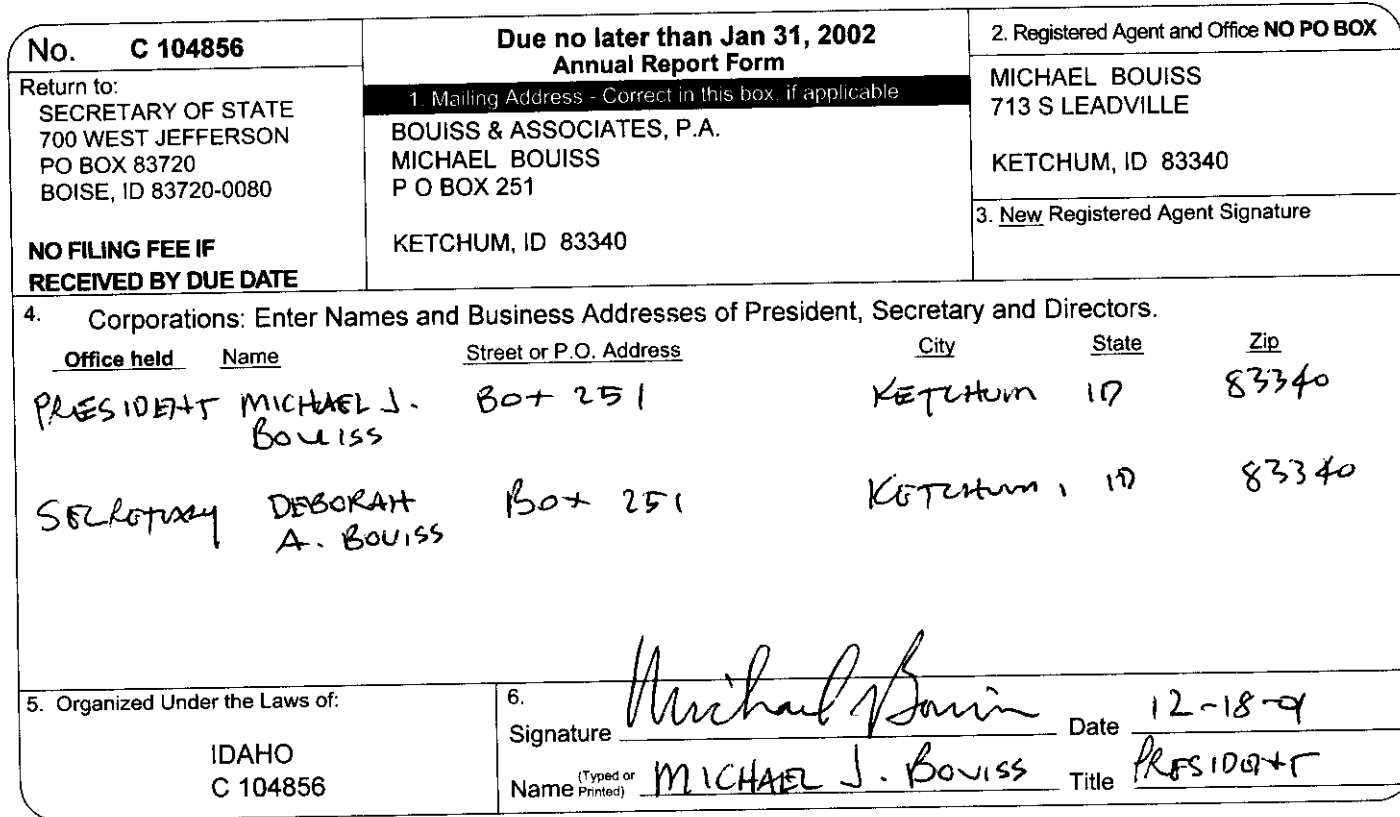 No. C 104856
Return to:
SECRETARY OF STATE
700 WEST JEFFERSON
PO BOX 83720
BOISE, ID 83720-0080
NO FILING FEE IF
RECEIVED BY DUE DATE
Due no later than Jan 31, 2002
Annual Report Form
1. Mailing Address - Correct in this box, if applicable
BOUISS & ASSOCIATES, P.A.
MICHAEL BOUISS
P O BOX 251
KETCHUM, ID 83340
2. Registered Agent and Office NO PO BOX
MICHAEL BOUISS
713 S LEADVILLE
KETCHUM, ID 83340
3. New Registered Agent Signature
4. Corporations: Enter Names and Business Addresses of President, Secretary and Directors.
Office held Name Street or P.O. Address City State Zip
PRESIDENT MICHAEL J. BOX 251 KETCHUM ID 83340
BOUISS
SECRETARY DEBORAH BOX 251 KETCHUM, ID 83340
A. BOUISS
5. Organized Under the Laws of:
IDAHO
C 104856
6.
Signature Michael J Bouiss Date 12-18-01
Name (Typed or Printed) MICHAEL J. BOUISS Title PRESIDENT